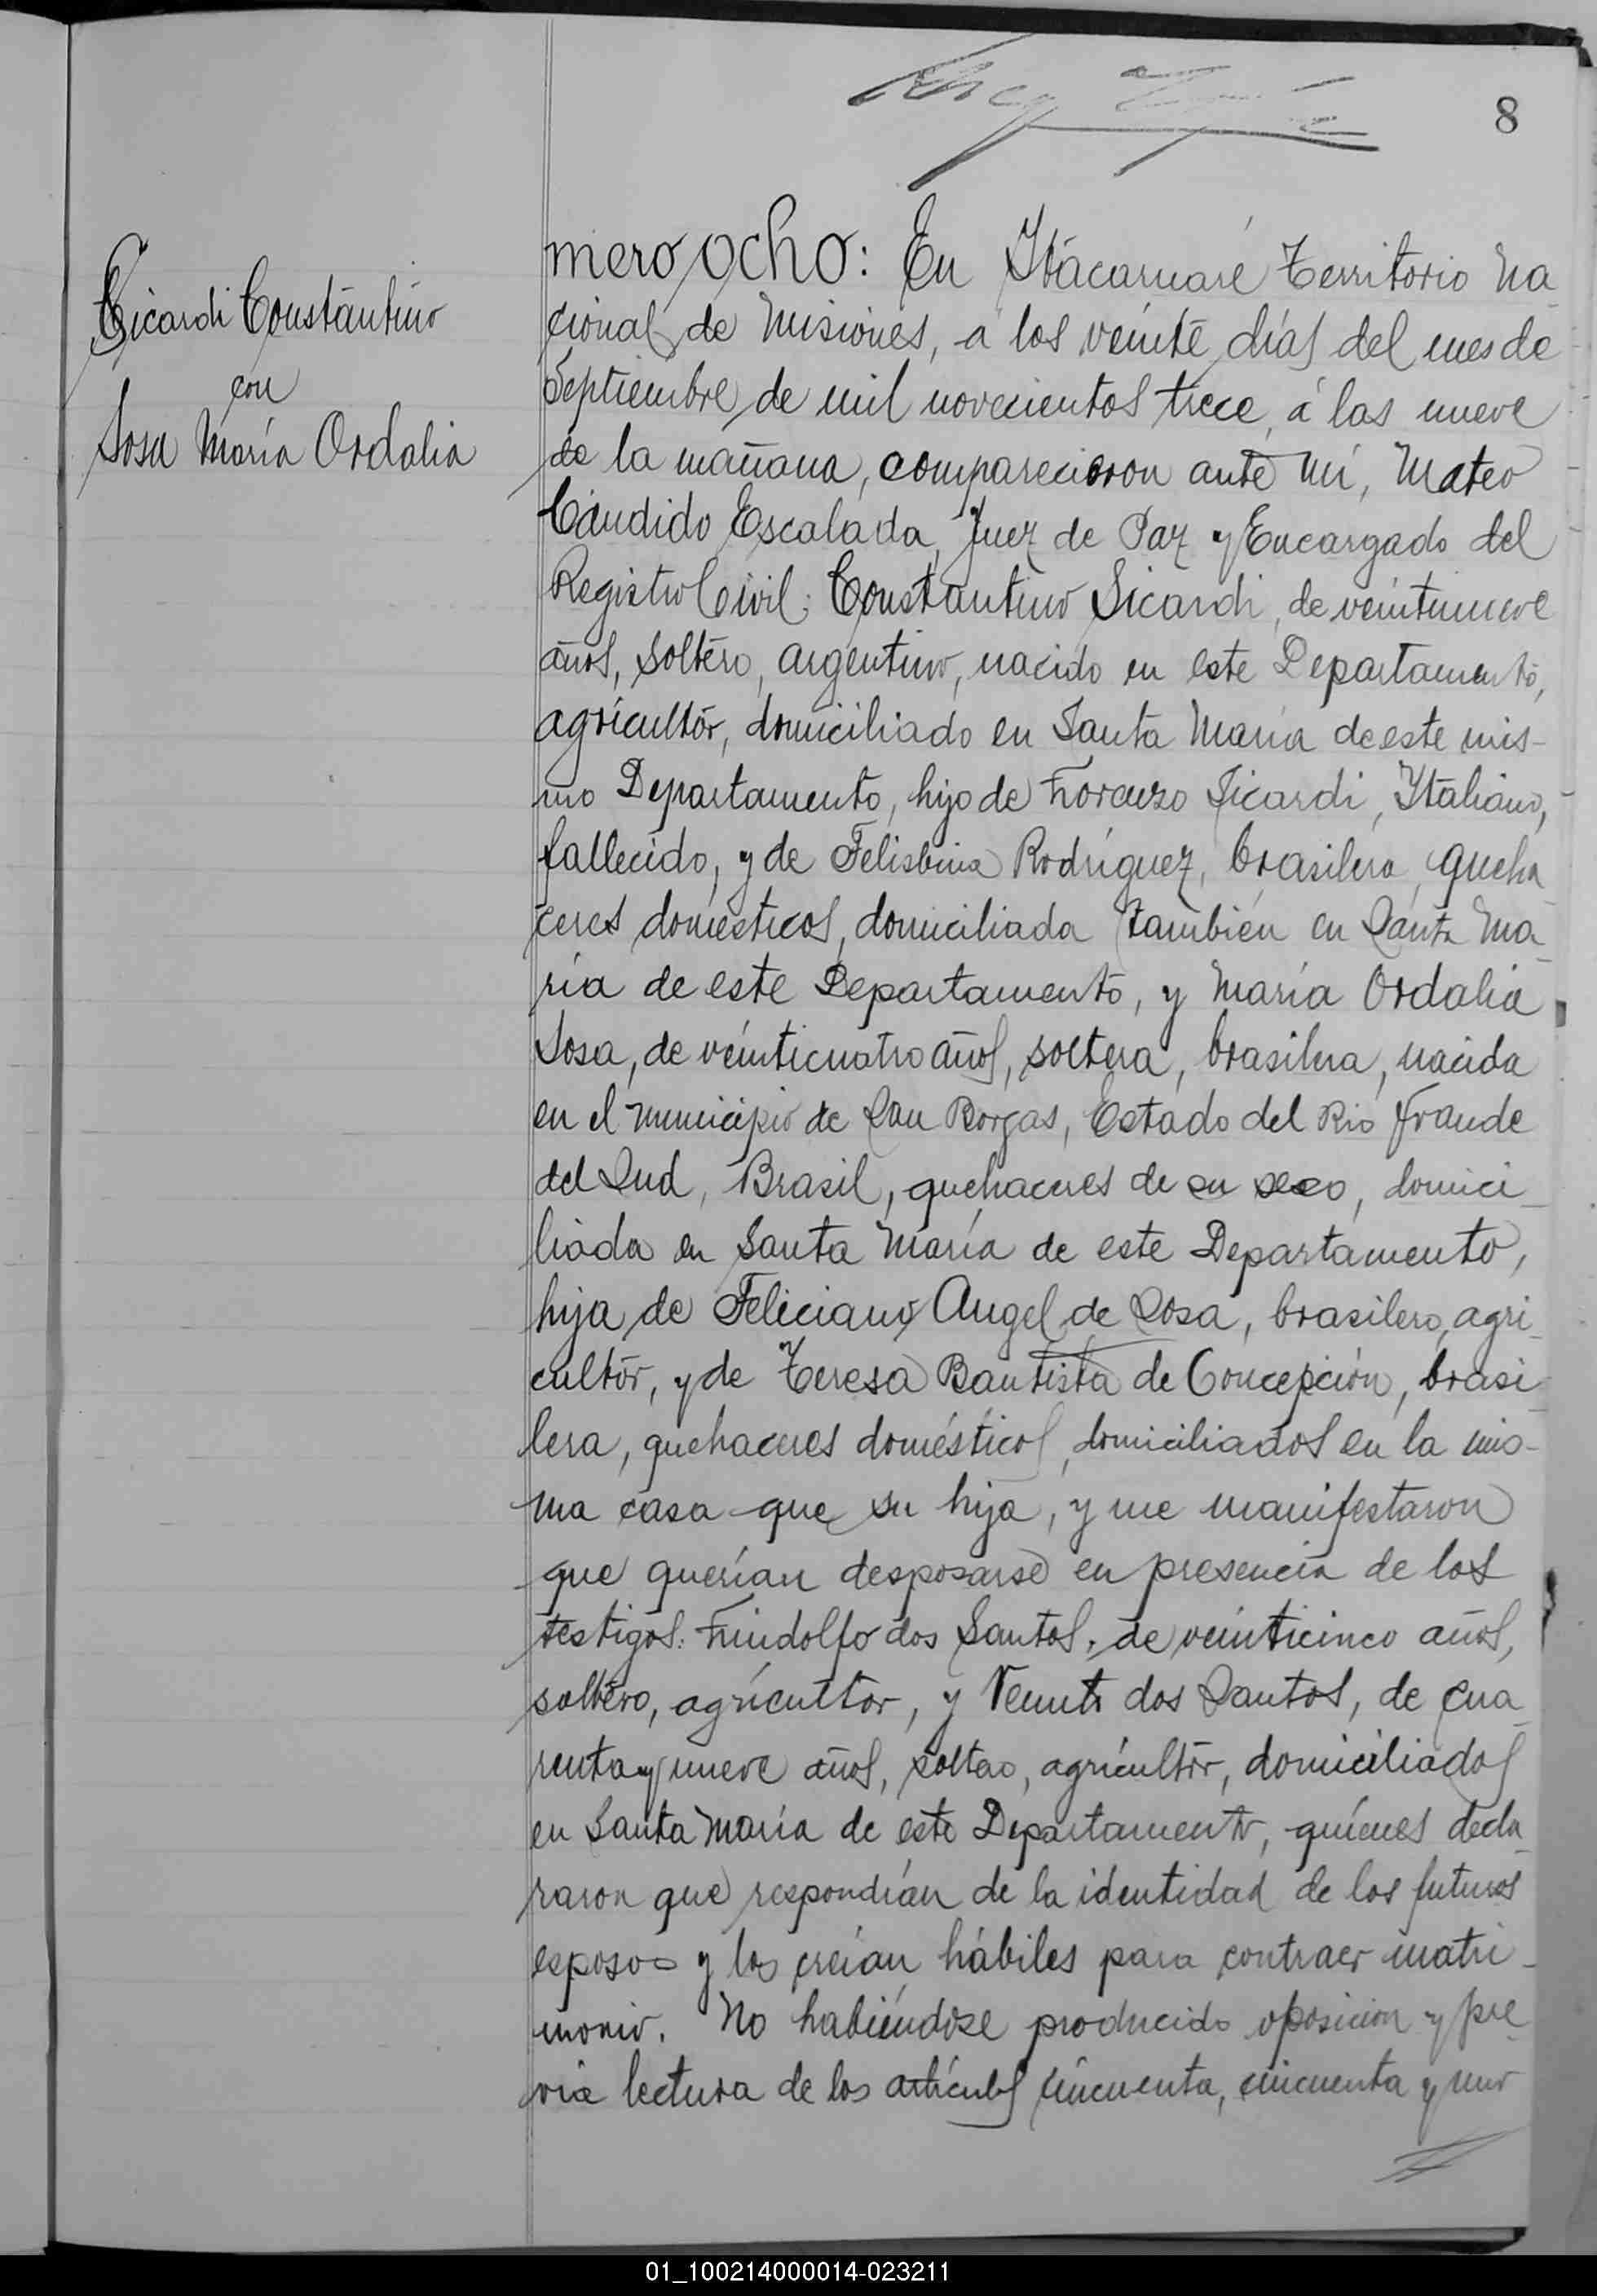 8
Sicardi Constantino
con
Sosa María Ordalia
mero ocho: En Itácaruaré Territorio Na_
cional de Misiones, a los veinte días del mes de
Septiembre de mil novecientos trece, á las nueve
de la mañana, comparecieron ante mí, Mateo
Cándido Escalada, Juez de Paz y Encargado del
Registro Civil: Constantino Sicardi, de veintinueve
años, soltero, argentino, nacido en este Departamento,
agricultor, domiciliado en Santa María de este mis-
mo Departamento, hijo de Sicardi, Italiano,
fallecido, y de Felisbina Rodríguez, brasilera, queha_
ceres domésticos, domiciliada también en Santa Ma_
ría de este Departamento, y María Ordalia
Sosa, de veinticuatro años, soltera, brasilera, nacida
en el municipio de San Borjas, Estado del Rio Grande
del Sud, Brasil, quehaceres de su sexo, domici_
liada en Santa María de este Departamento,
hija de Feliciano Angel de Sosa, brasilero, agri_
cultor, y de Teresa Bautista de Concepción, brasi_
lera, quehaceres domésticos, domiciliados en la mis-
ma casa que su hija, y me manifestaron
que querían desposarse en presencia de los
testigos: dos Santos, de veinticinco años,
soltero, agricultor, y dos Santos, de cua_
renta y nueve años, soltero, agricultor, domiciliados
en Santa María de este Departamento, quiénes decla_
raron que respondían de la identidad de los futuros
esposos y los creían hábiles para contraer matri_
monio. No habiéndose producido oposición y pre_
via lectura de los artículos cincuenta, cincuenta y uno
01_100214000014-023211